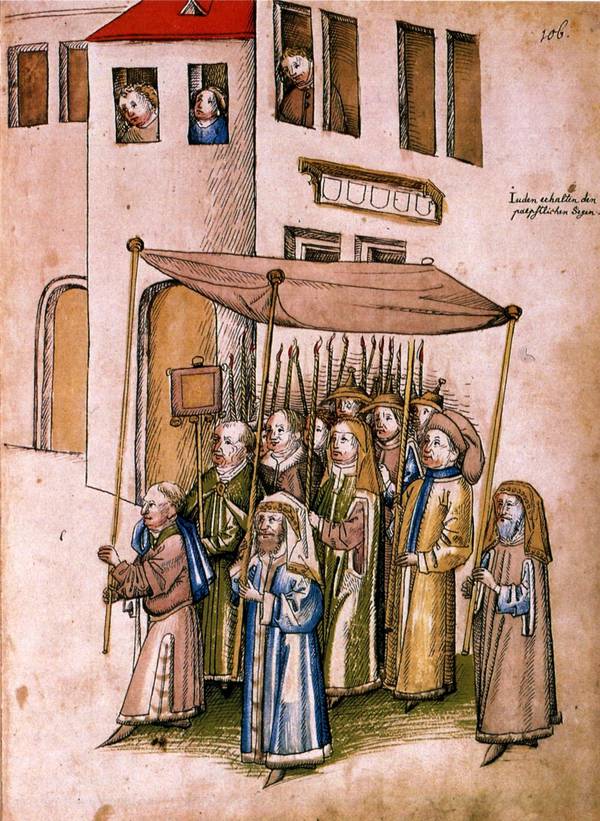 106.
Juden erhalten den
paepstlichen Segen.